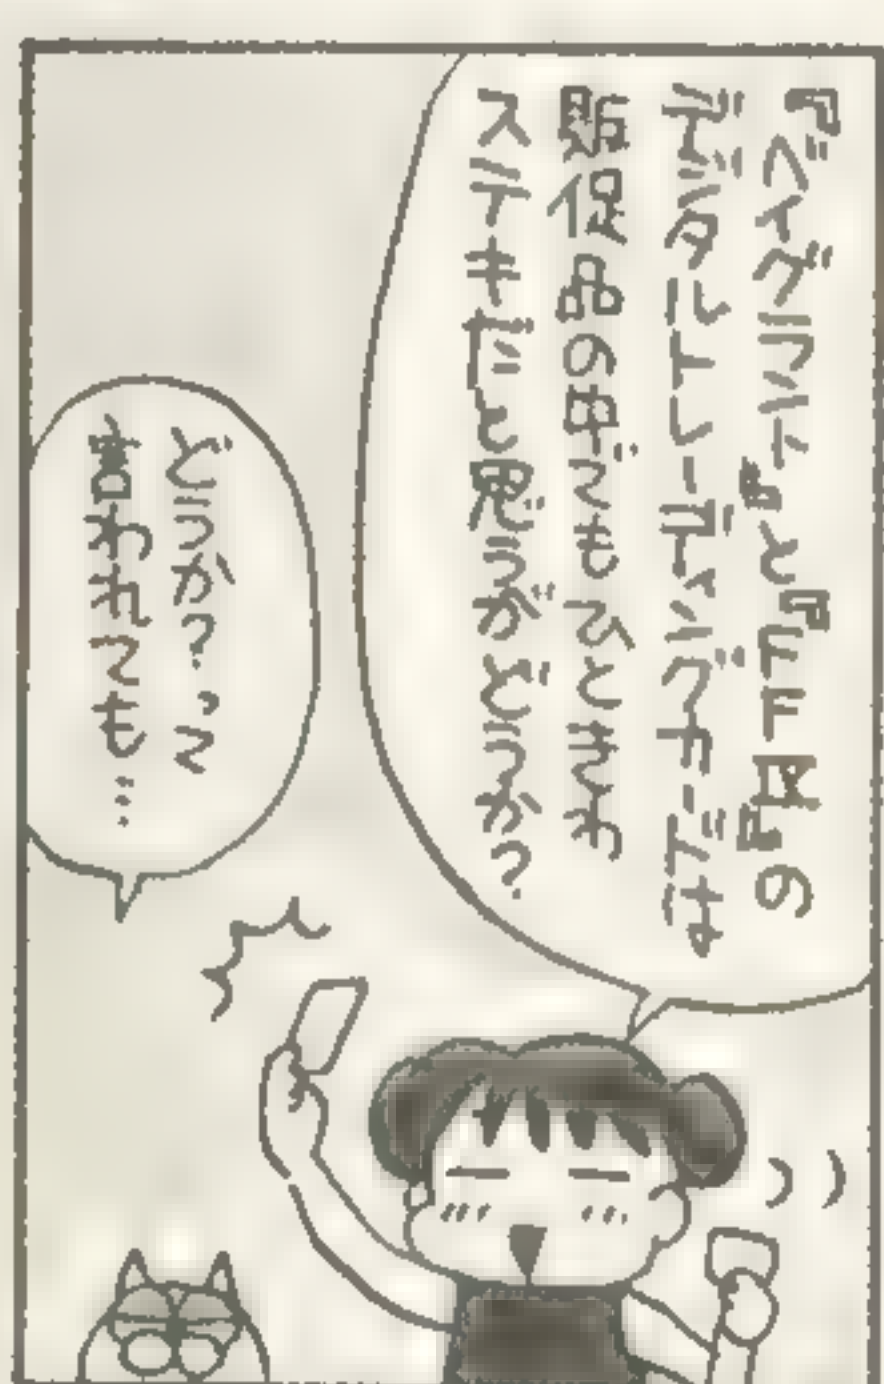 『ベイグラント』と『FFⅨ』の
デジタルトレーディングカードは
販促品の中でもひときわ
ステキだと思うがどうか?
どうか?って
言われても…